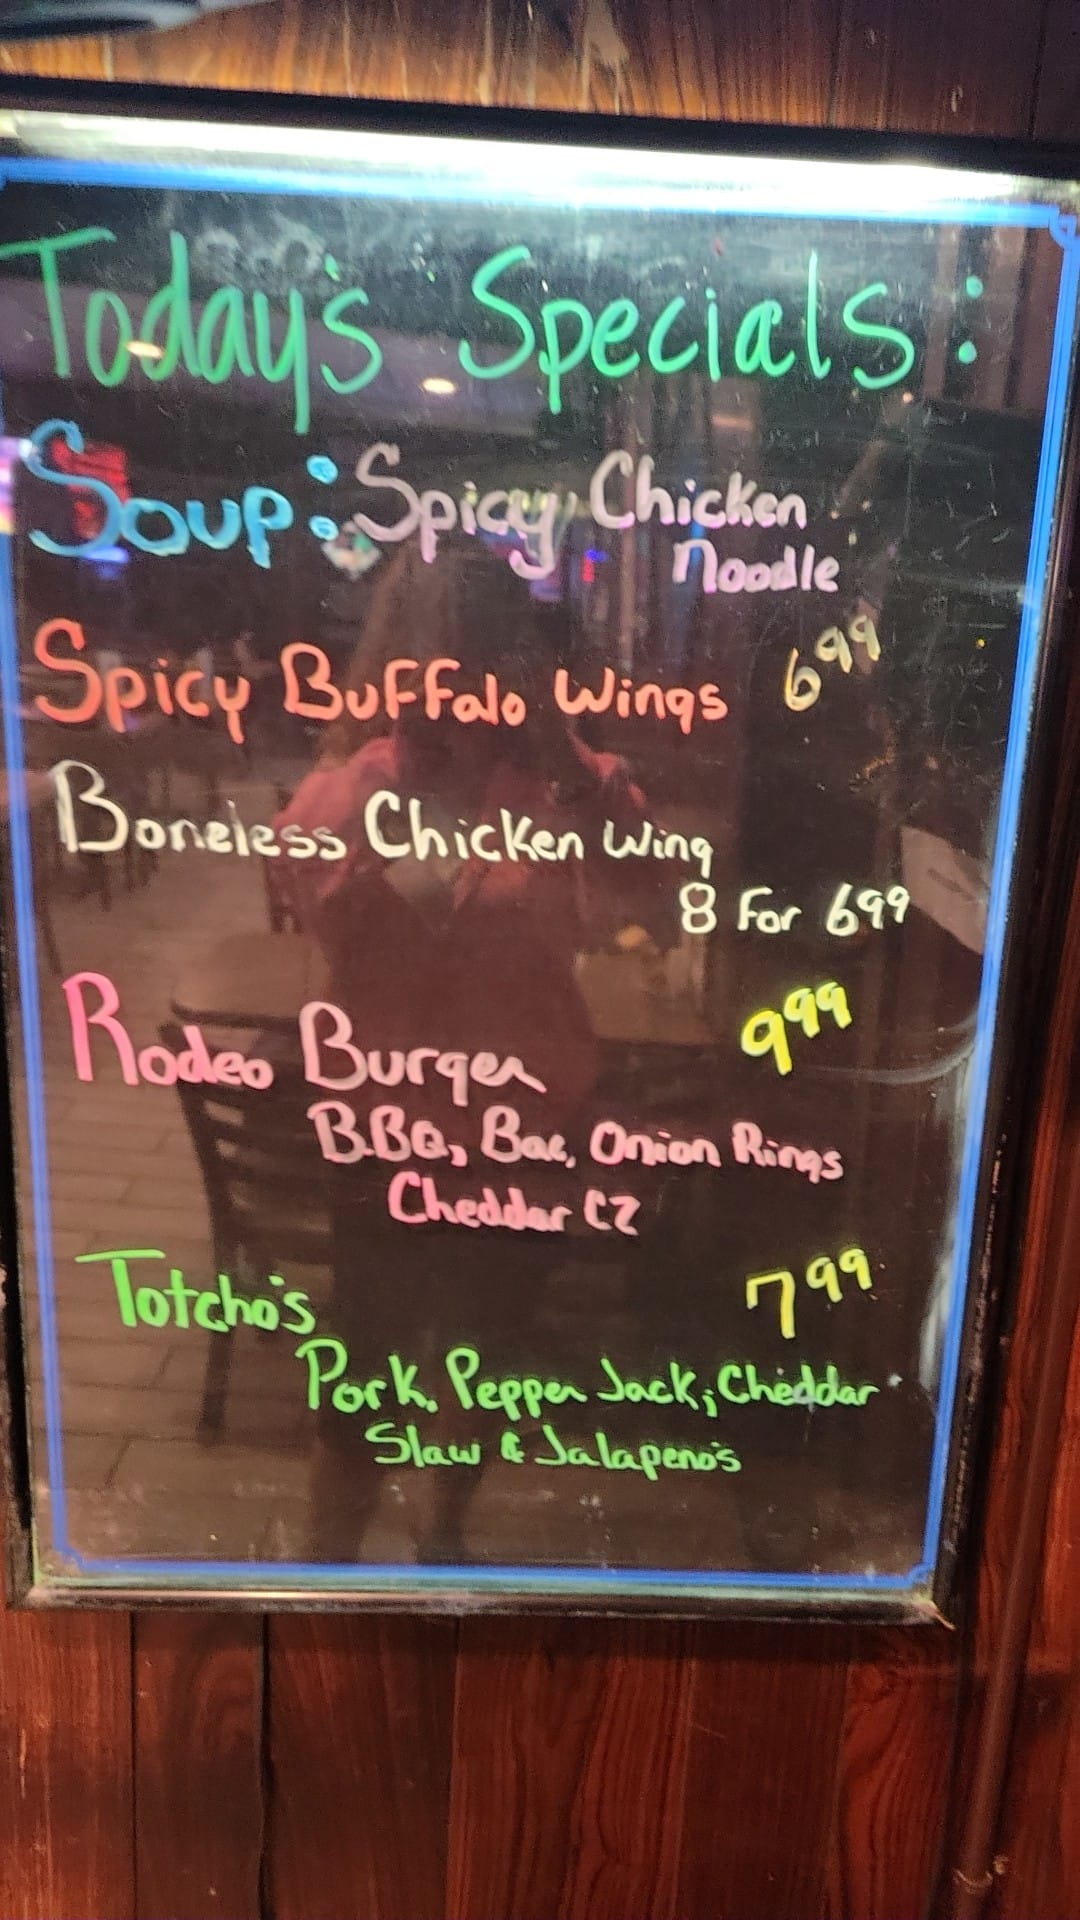 Today's Specials:
Soup: Spicy Chicken
Noodle
Spicy Buffalo Wings 6 99
Boneless Chicken Wing
8 For 6 99
Rodeo Burger 9 99
B.BQ, Bac, Onion Rings
Cheddar CZ
Totcho's 7 99
Pork, Pepper Jack, Cheddar
Slaw & Jalapeno's